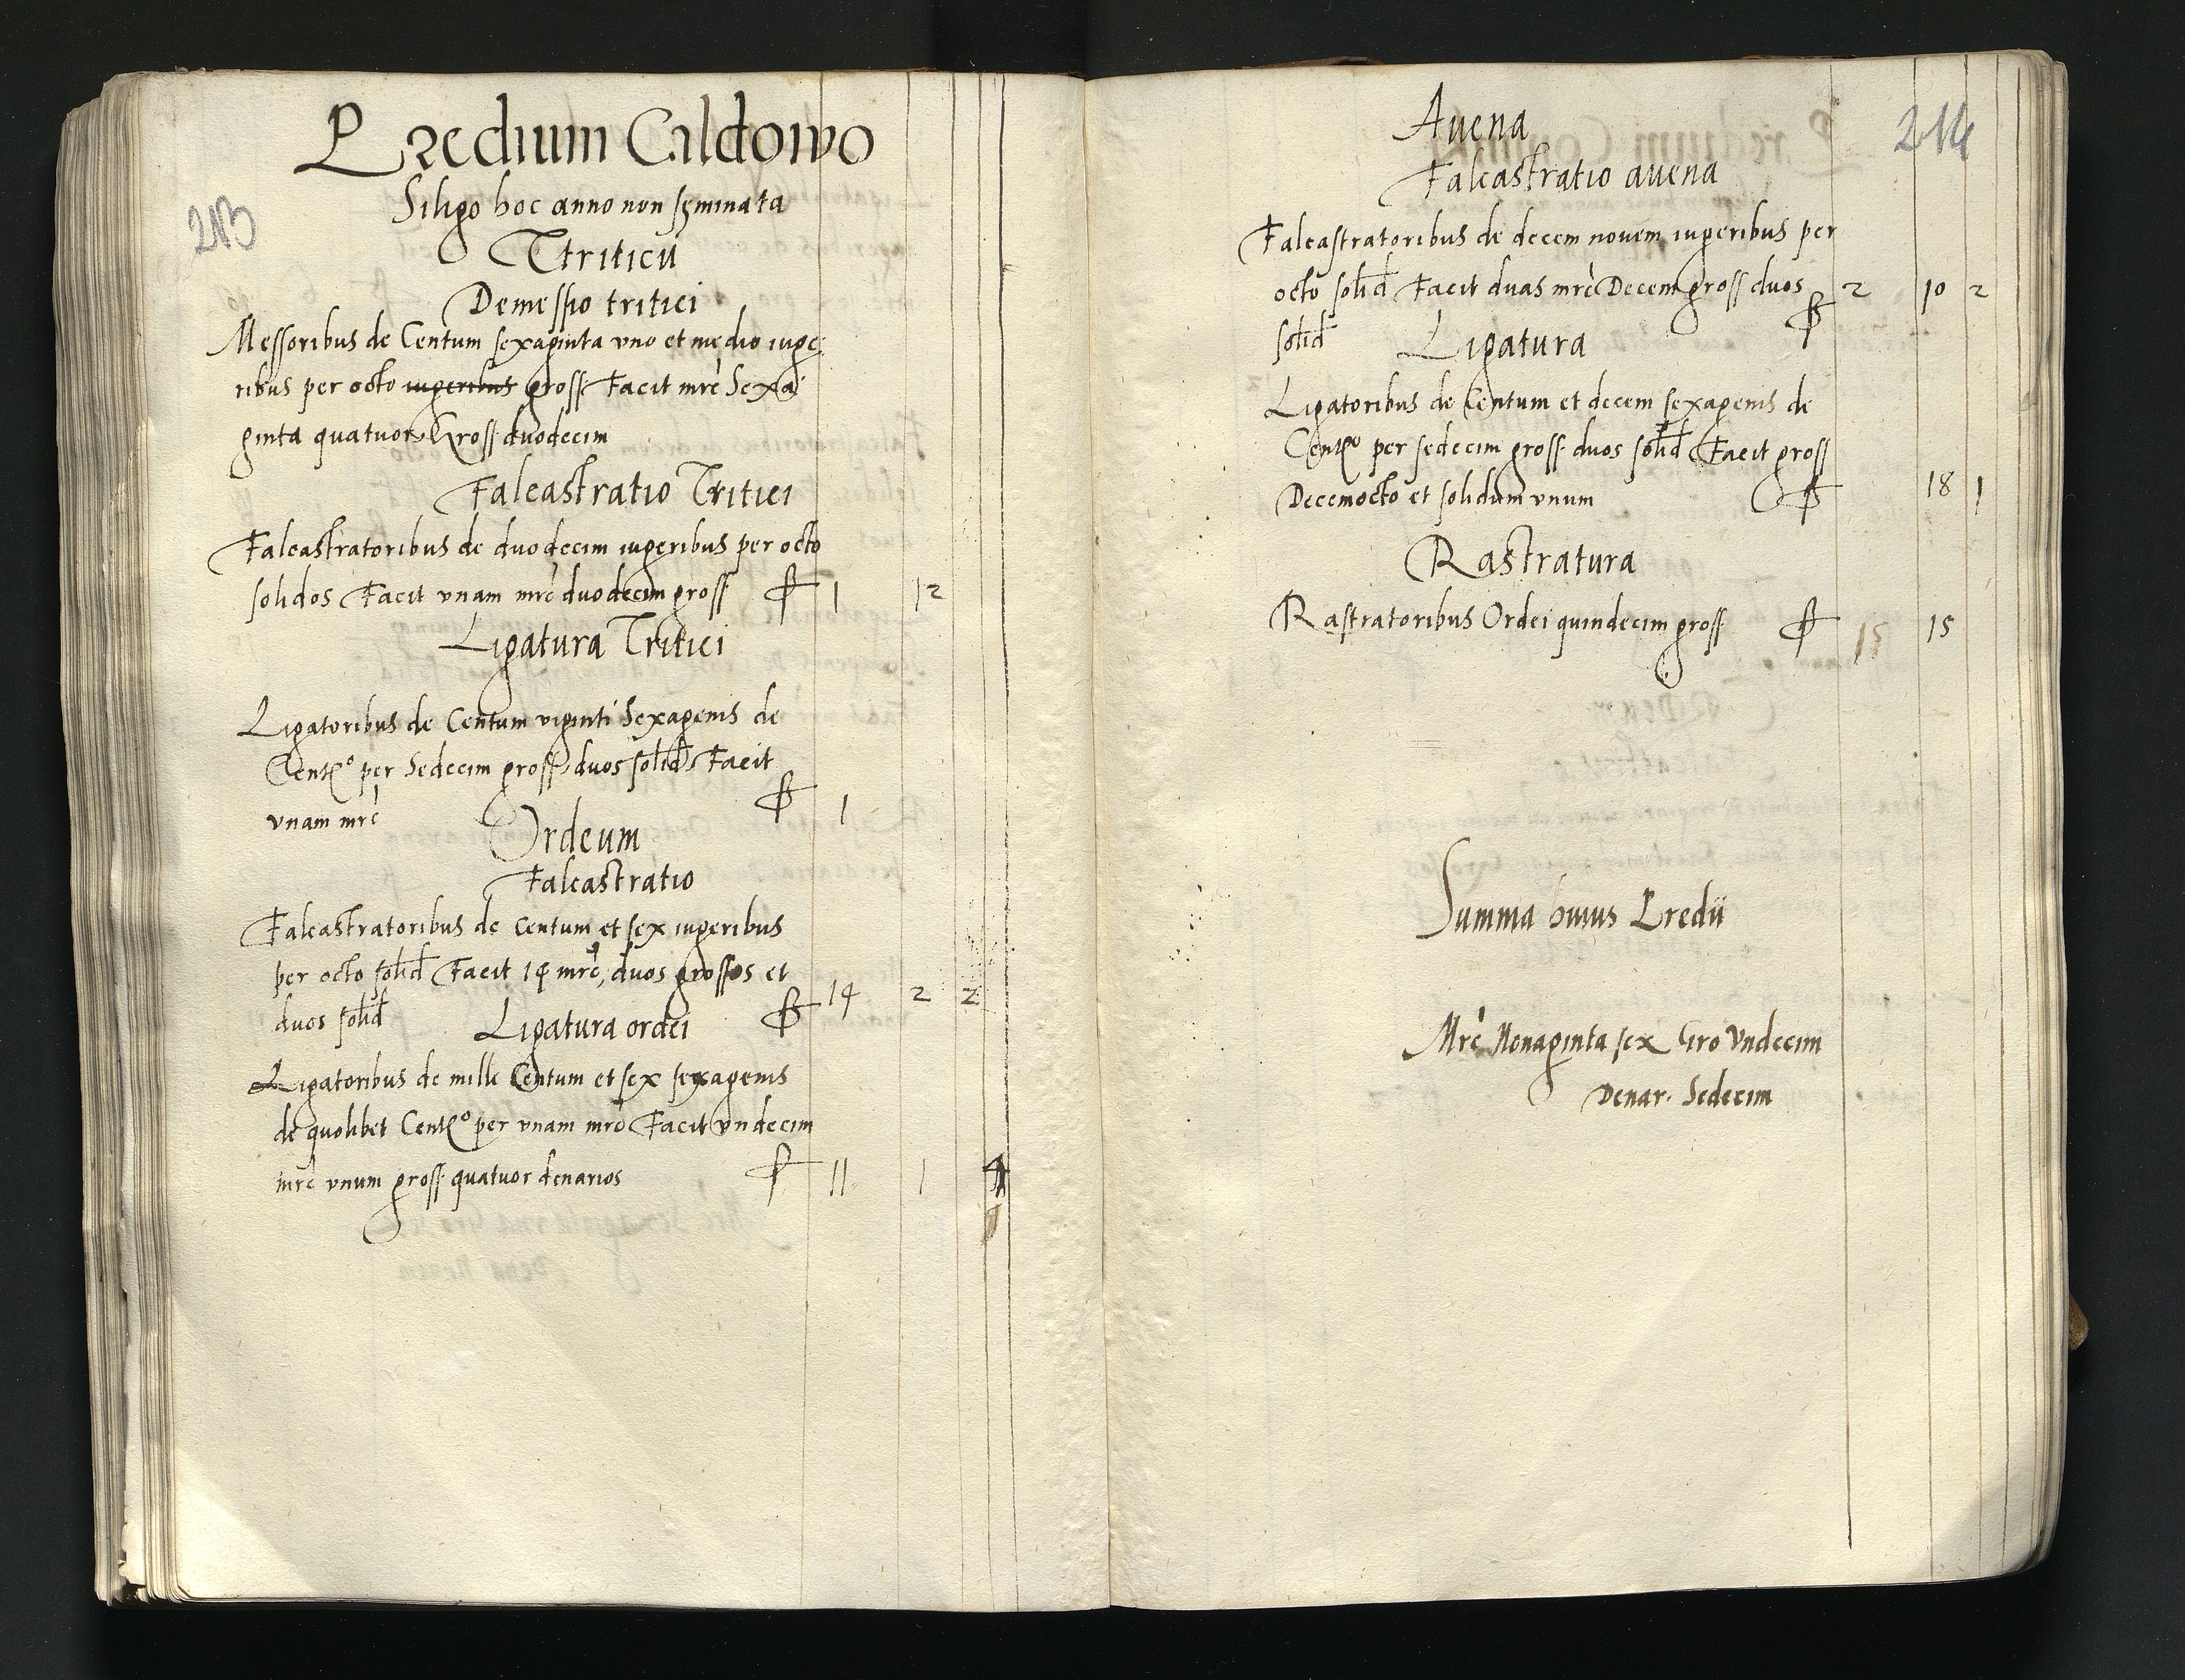 Predium Caldowo
213
Siligo hoc anno non seminata
Triticū
Demessio tritici
Messoribus de Centum sexaginta vno et medio iuge:
ribus per octo iugeribus gross Facit mrc Sexa
ginta quatuor Gross duodecim
Falcastratio Tritici
Falcastratoribus de duodecim iugeribus per octo
solidos Facit vnam mrc duodecim gross f 1 12
Ligatura Tritici
Ligatoribus de Centum viginti Sexagenis de
Centro per Sedecim gross duos solid Facit
vnam mrc f 1
Ordeum
Falcastratio
Falcastratoribus de Centum et sex iugeribus
per octo solid Facit 14 mrc, duos grossos et
duos solid f 14 2 2
Ligatura ordei
Ligatoribus de mille Centum et sex sexagenis
de quolibet Centro per vnam mrc Facit vndecim
mrc vnum gross quatuor denarios f 11 1 4
214
Auena
Falcastratio auena
Falcastratoribus de decem nouem iugeribus per
octo solid Facit duas mrc Decem gross duos f 2 10 2
solid
Ligatura
Ligatoribus de Centum et decem sexagenis de
Centro per sedecim gross duos solid Facit gross
Decemocto et solidum vnum f 18 1
Rastratura
Rastratoribus Ordei quindecim gross f 15 15
Summa huius Predii
Mrc Nonaginta sex Gro Vndecim
Denar. Sedecim